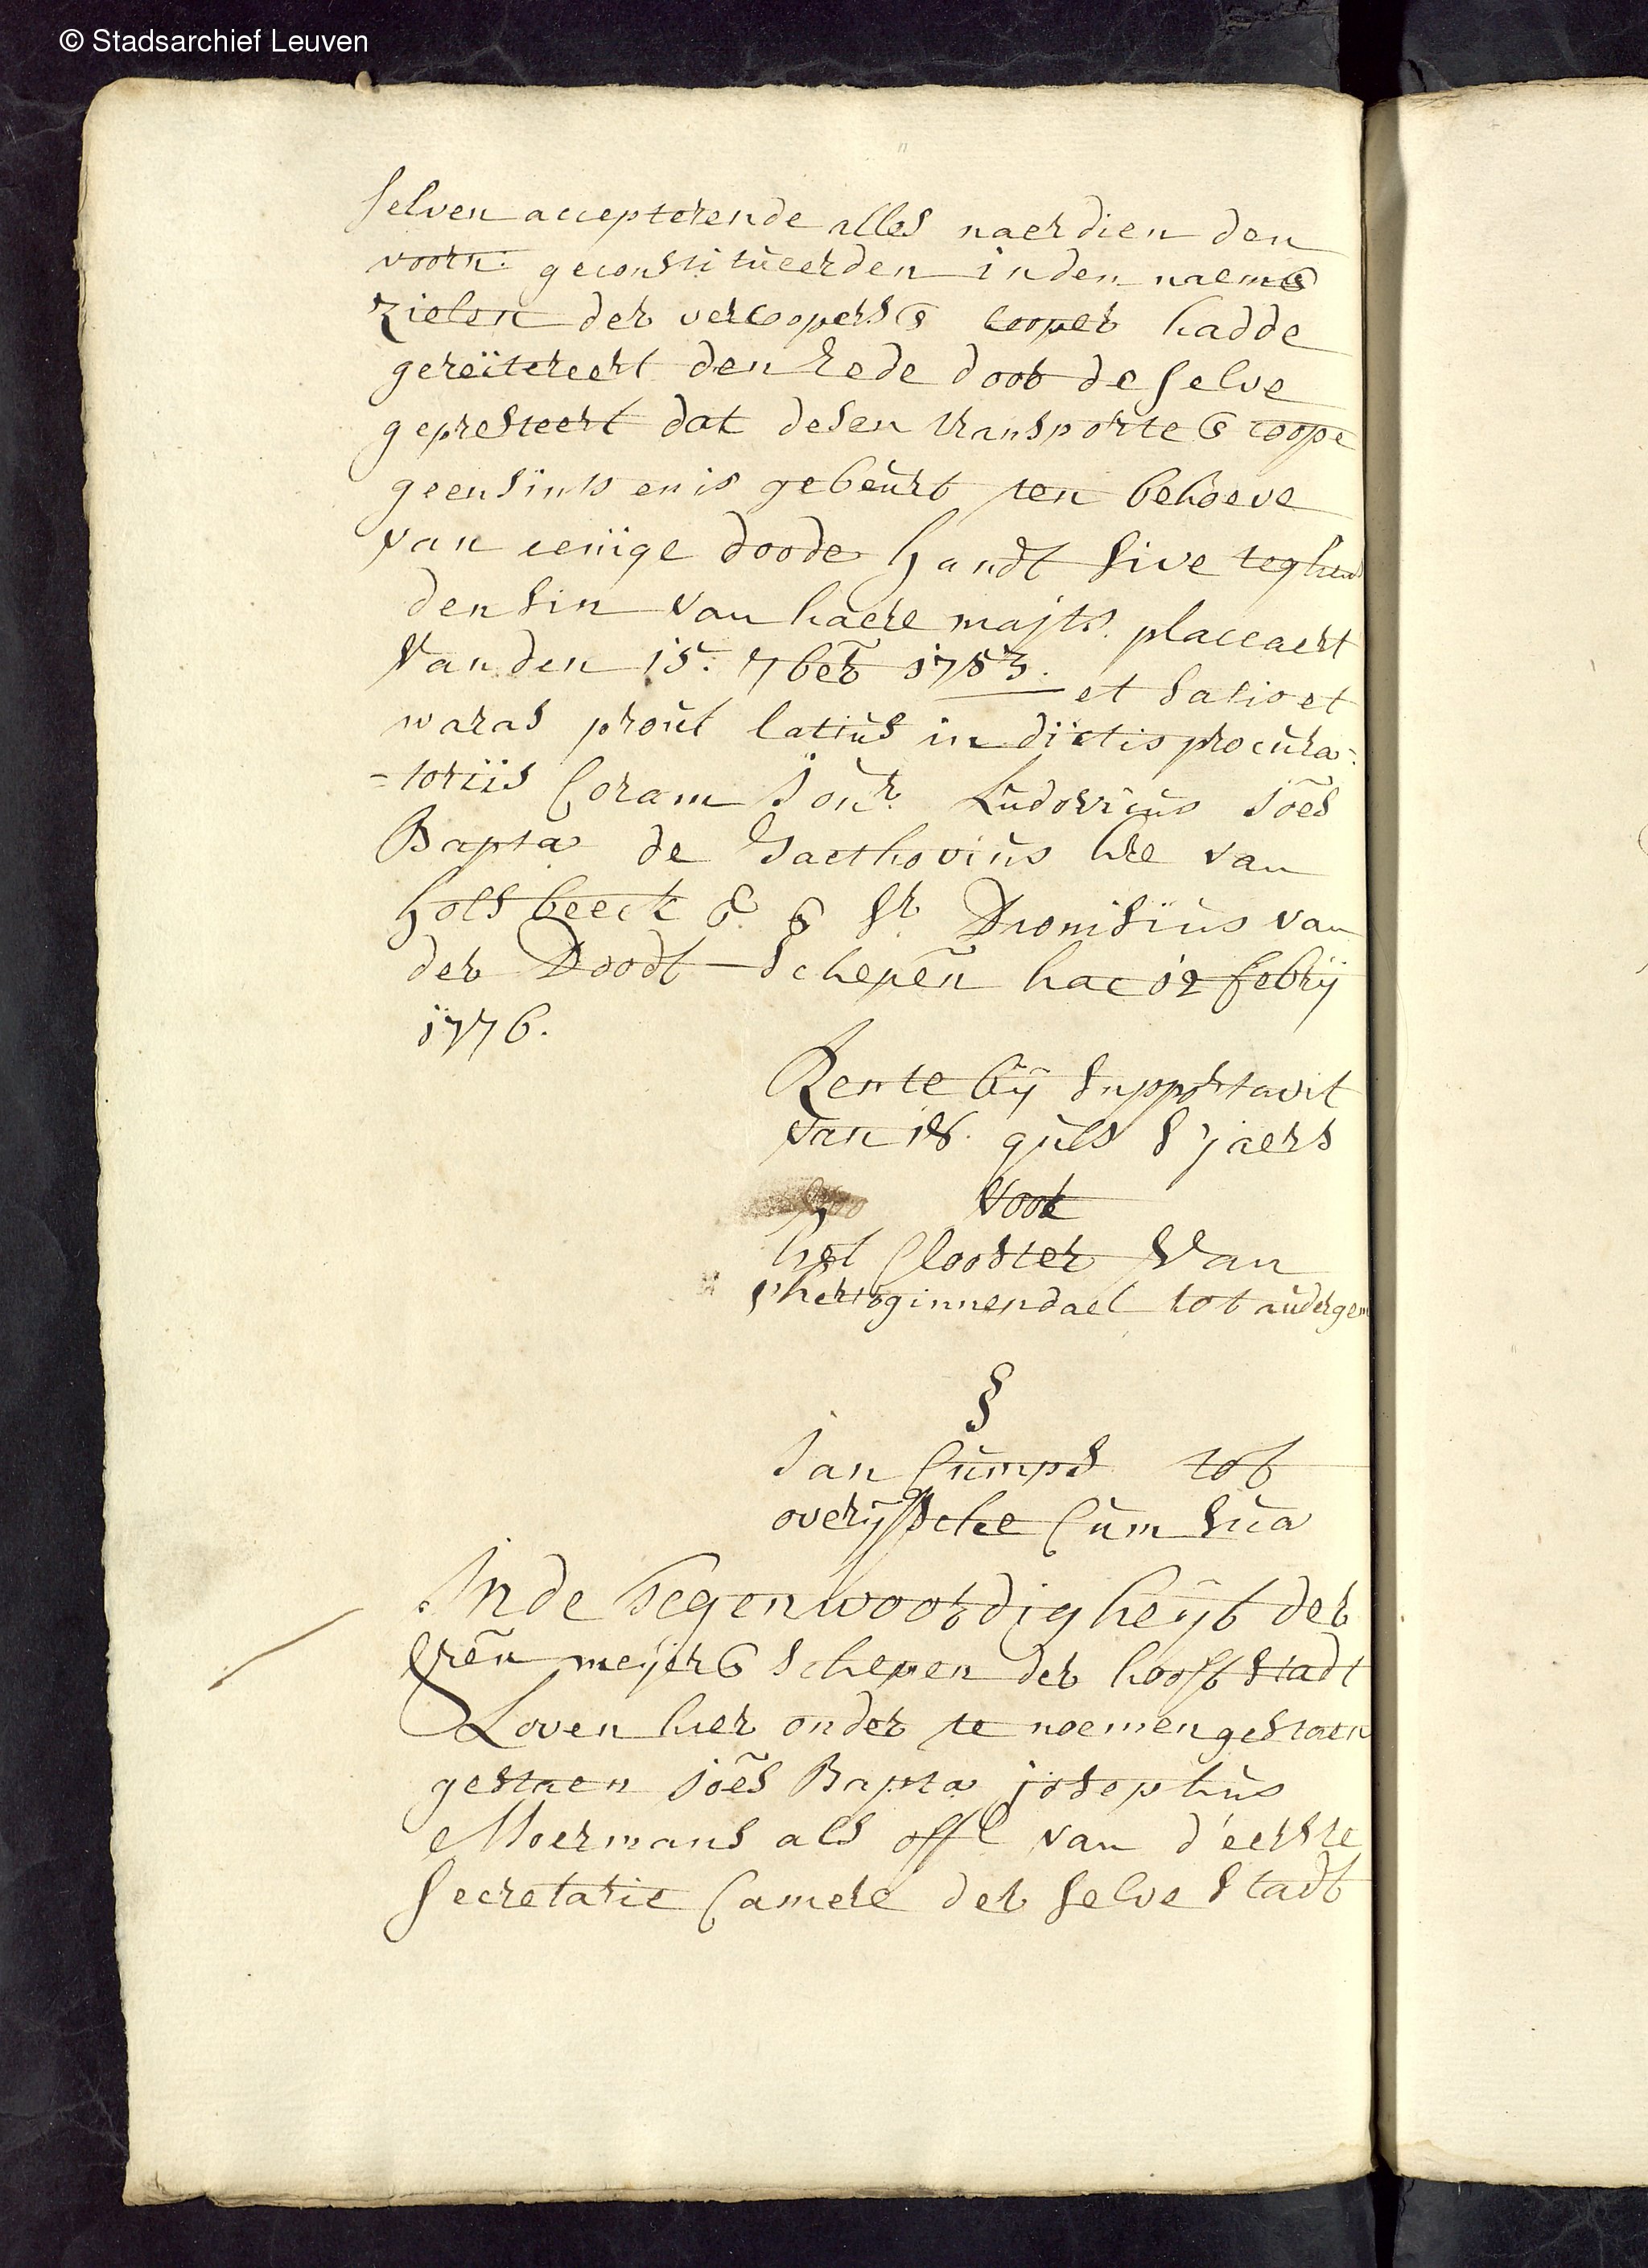 © Stadsarchief Leuven
selven accepterende alles naerdien den
voorn: geconstitueerden inden naem &
zielen der vercoopers & cooper hadde
gereïtereert den eede door de selve
gepresteert dat desen transporte & coope
geensints en is gebeurt ten behoeve
van eenige doode handt sive teghens
den sin van haere majts. placcaert
van den 15. 7ber 1753. et satis et
waras prout latius in dictis procura=
=toriis Coram Jonr. Ludovicus Joês
Bapta de Gaethovius hre van
holsbeeck & & Sr Dionisius van
der Doodt Schepên hac 12 febrij
1776.
Rente bij supportavit
van 18. guls s'jaers
voor
het Clooster van
s'hertoginnendael tot auderghem
§
Jan Cumps tot
overijssche Cum sua
In de tegenwoordigheijt der
hrên meijer & schepen der hooft stadt
Loven hier onder te noemen gestaen
gestaen joês Bapta josephus
Moermans als offl van d'eerste
secretarie Camere der selve stadt